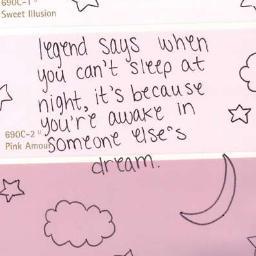 690C-1
Sweet Illusion
legend says when
you can't sleep at
night, it's because
you're awake in
690C-2
Pink Amou
someone else's
dream.